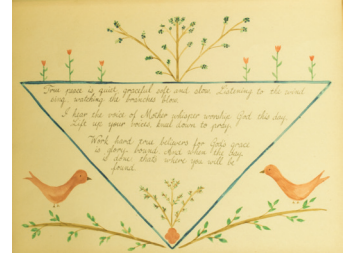 True peace is quiet, graceful soft and slow. Listening to the wind
sing, watching the branches blow.
I hear the voice of Mother whisper worship God this day.
Lift up your voices, kneel down to pray!
Work hard true believers for God's grace
is glory bound. And when the day
is done that's where you will be
found.